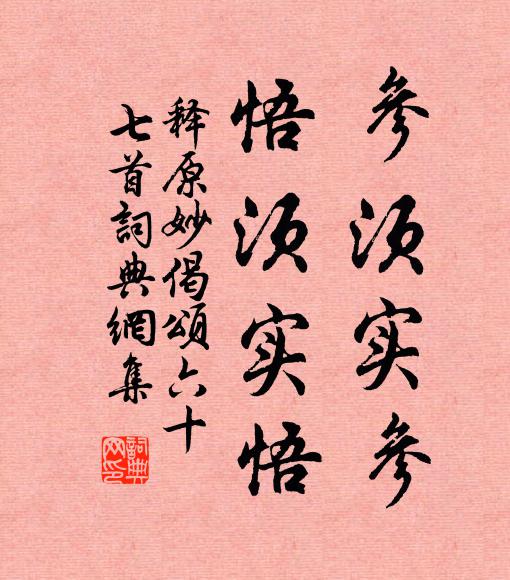 參须实參
悟须实悟
释原妙偈頌六十
七首詞典網集
詞典网印